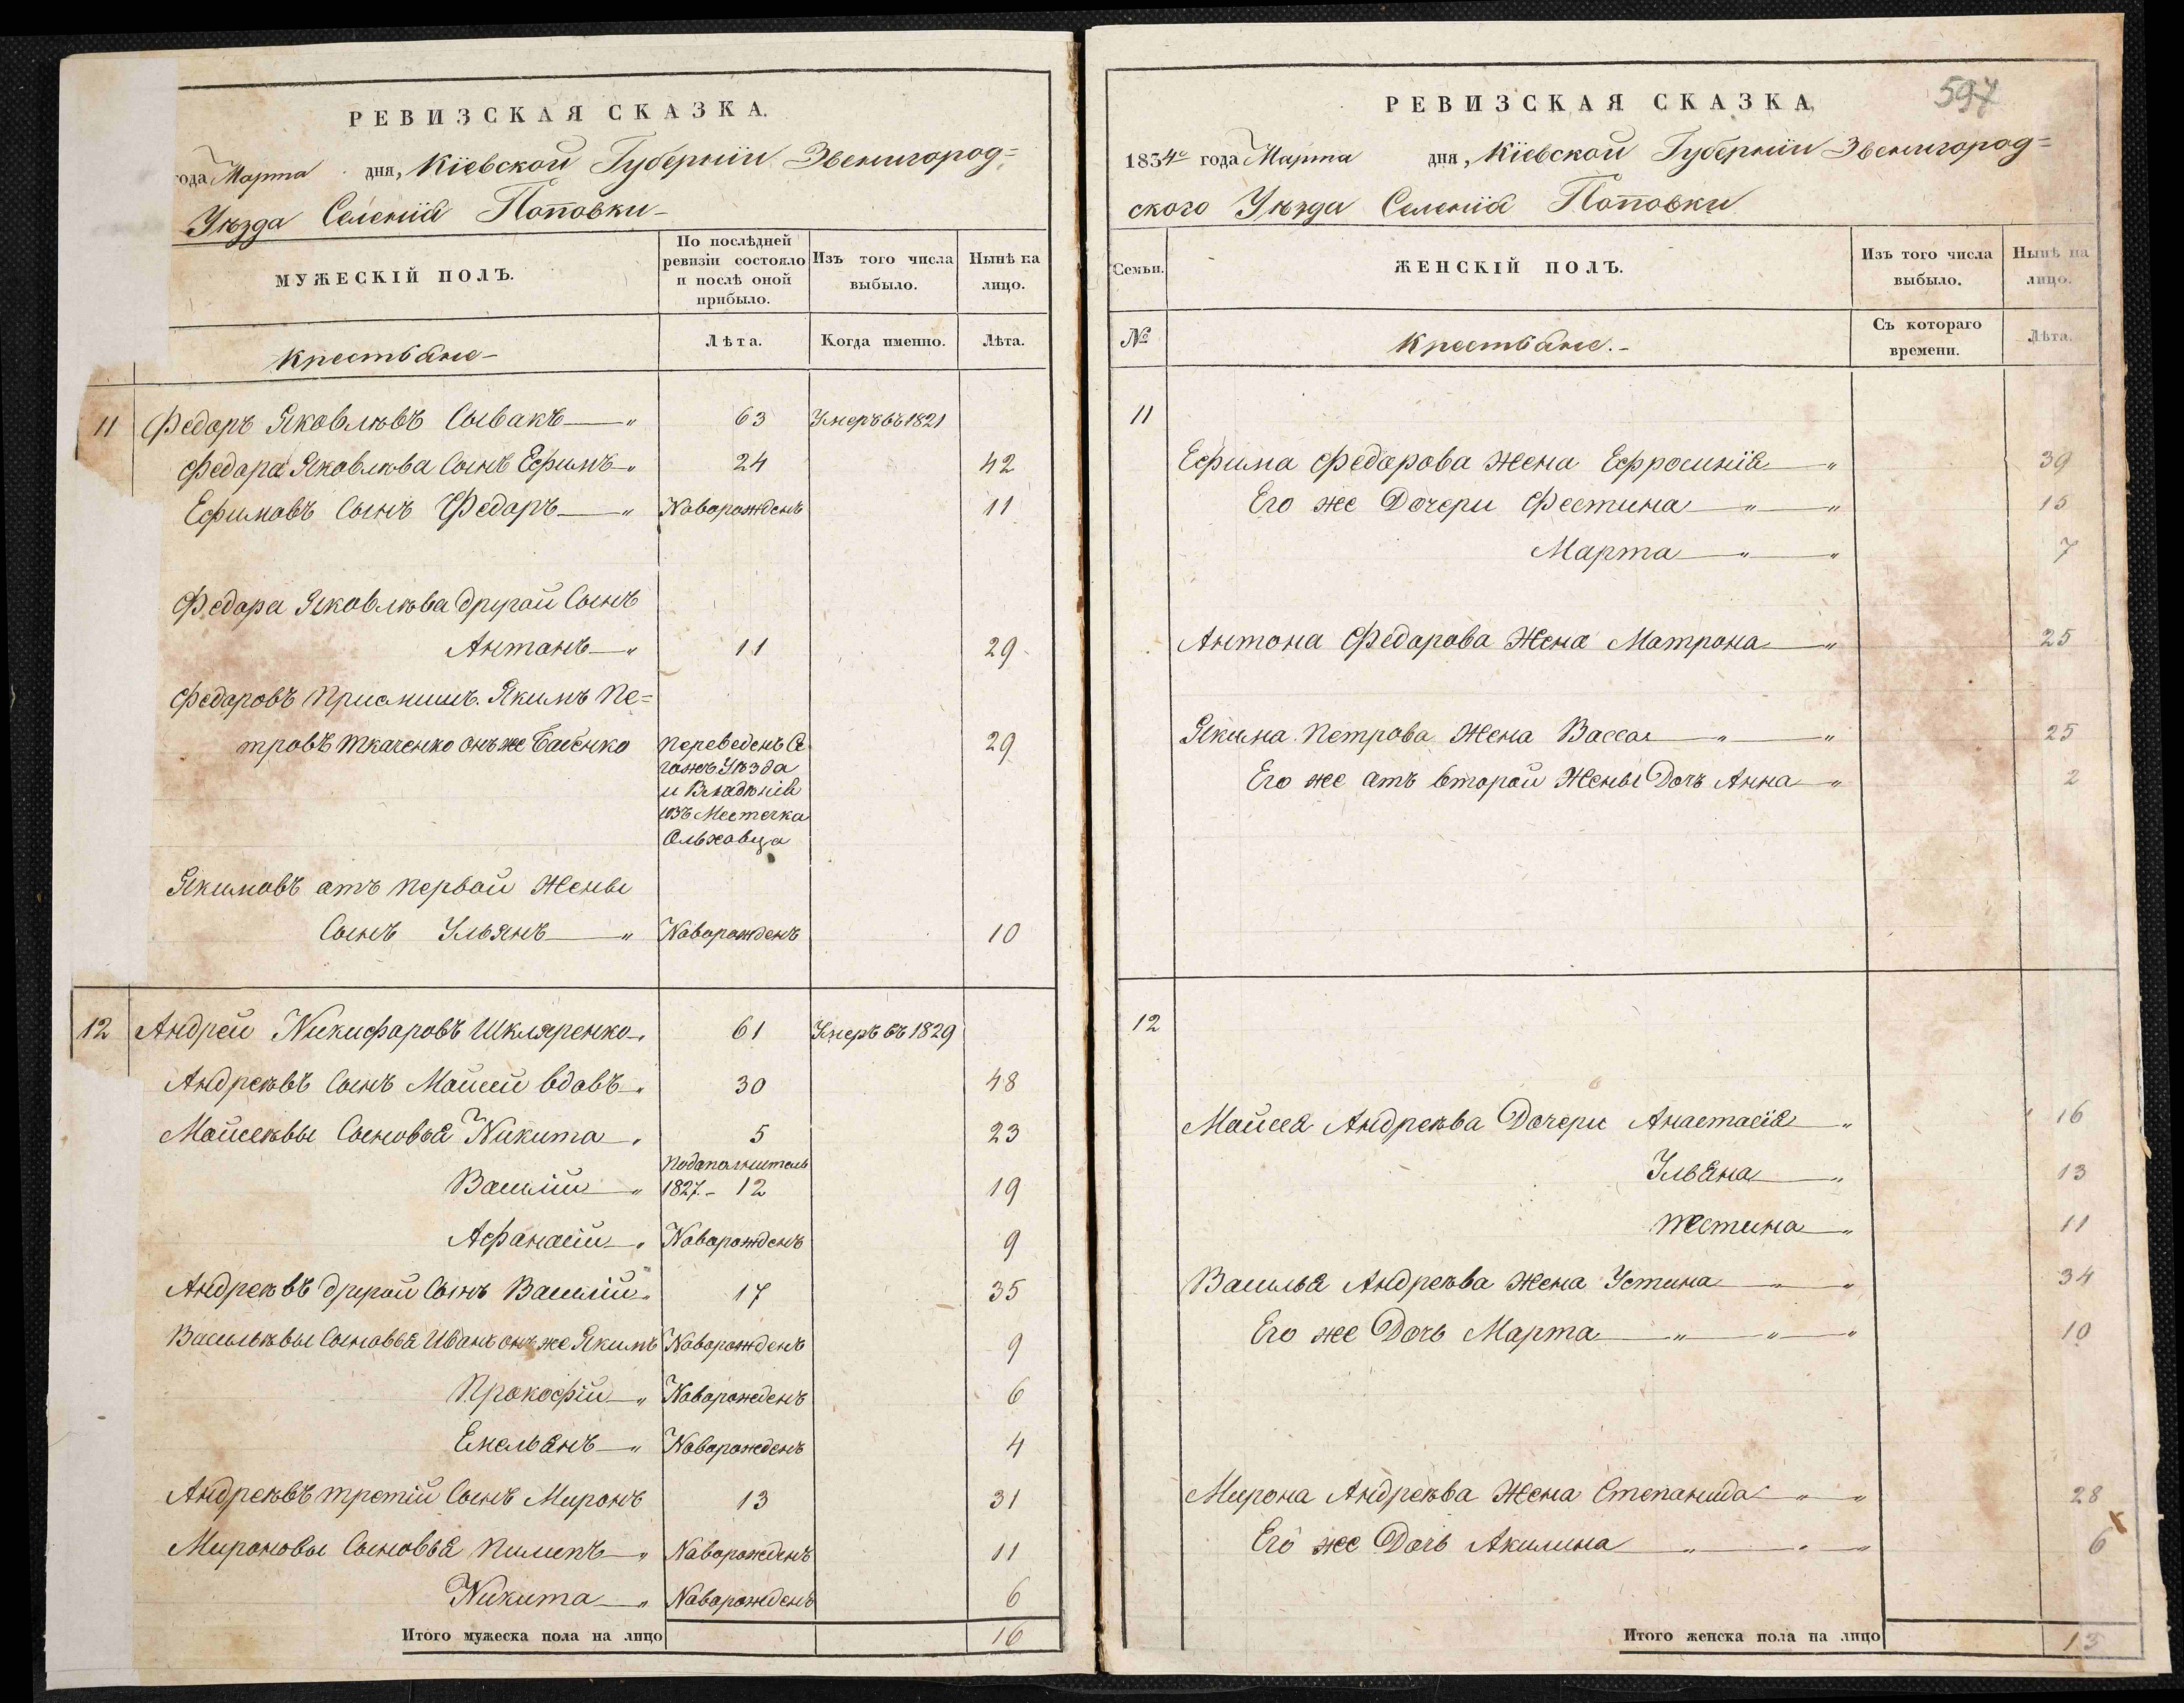 РЕВИЗСКАЯ СКАЗКА.
года Марта дня, Кіевской Губерніи Звенигород=
Уѣзда Селенія Поповки
МУЖЕСКІЙ ПОЛЪ.
По послѣдней ревизіи состояло и послѣ оной прибыло.
Изъ того числа выбыло.
Нынѣ на лицо.
Крестьяне
Лѣта.
Когда именно.
Лѣта.
11 Федоръ Яковлѣвъ Сывакъ 63 Умеръ въ 1821
Федора Яковлѣва Сынъ Ефимъ 24 42
Ефимовъ Сынъ Федоръ Наворожденъ 11
Федора Яковлѣва другой Сынъ
Антанъ 11 29
Федоровъ Приемишъ Якимъ Пе=
тровъ Ткаченко онъ же Баенко переведенъ 29
Уѣзда
и Владѣнія
изъ Местечка
Ольховца
Якимовъ атъ первой Жены
Сынъ Ульянъ Наворожденъ 10
12 Андрей Никифаровъ Шкляренко 61 Умеръ въ 1829
Андреѣвъ Сынъ Мойсей вдовъ 30 48
Мойсеѣвы Сыновья Никита 5 23
Василій 1827 12 19
Афанасій Наворожденъ 9
Андреѣвъ другой Сынъ Василій 17 35
Васильѣвы Сыновья Иванъ онъ же Якимъ Наворожденъ 9
Прокофій Наворожденъ 6
Емельянъ Наворожденъ 4
Андреѣвъ третій Сынъ Миронъ 13 31
Мироновы Сыновья Пименъ Наворожденъ 11
Никита Наворожденъ 6
Итого мужеска пола на лицо 16
597
РЕВИЗСКАЯ СКАЗКА,
1834го года Марта дня, Кіевской Губерніи Звенигород=
ского Уѣзда Селенія Поповки
Семьи.
ЖЕНСКІЙ ПОЛЪ.
Изъ того числа выбыло.
Нынѣ на лицо.
№
Крестьяне.
Съ котораго времени.
Лѣта.
11
Ефима Федорова Жена Ефросинія 39
Его же Дочери Фестина 15
Марта 7
Антона Федарова Жена Матрона 25
Якима Петрова Жена Васса 25
Его же атъ второй Жены Дочь Анна 2
12
Мойсея Андреѣва Дочери Анастасія 16
Ульяна 13
Жестина 11
Василья Андреѣва Жена Устина 34
Его же Дочь Марта 10
Мирона Андреѣва Жена Степанида 28
Его же Дочь Акилина 6
Итого женска пола на лицо 13